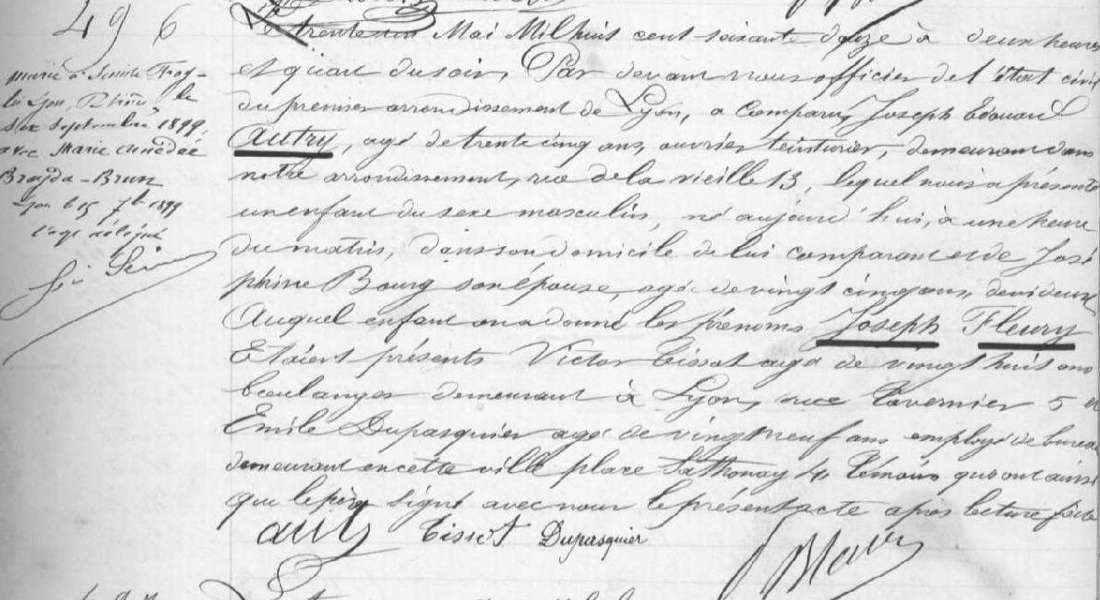 496
Marié à Sainte Foy-
lès Lyon, Rhône, le
six septembre 1899,
avec Marie Amédée
Brayda-Brun
Lyon le 15 7bre 1899
Le trente un Mai Mil huit cent soixante douze à deux heures
et quart du soir, Par devant nous officier de l'état civil
du premier arrondissement de Lyon, a comparu Joseph Edouard
Autry, agé de trente cinq ans, ouvrier teinturier, demeurant dans
notre arrondissement, rue de la vieille 13, lequel nous a présenté
un enfant du sexe masculin, né aujourd'hui, à une heure
du matin, dans son domicile de lui comparant et de José
phine Bourg son épouse, agée de vingt cinq ans, devideuse
Auquel enfant on a donné les prénoms Joseph Fleury
Etaient présents Victor Tissot agé de vingt huit ans
boulanger demeurant à Lyon, rue Tavernier 5 et
Emile Dupasquier agé de vingt neuf ans employé de bureau
demeurant en cette ville place Sathonay 4 témoins qui ont ainsi
que le père signé avec nous le présent acte après lecture faite
Autry Tissot Dupasquier